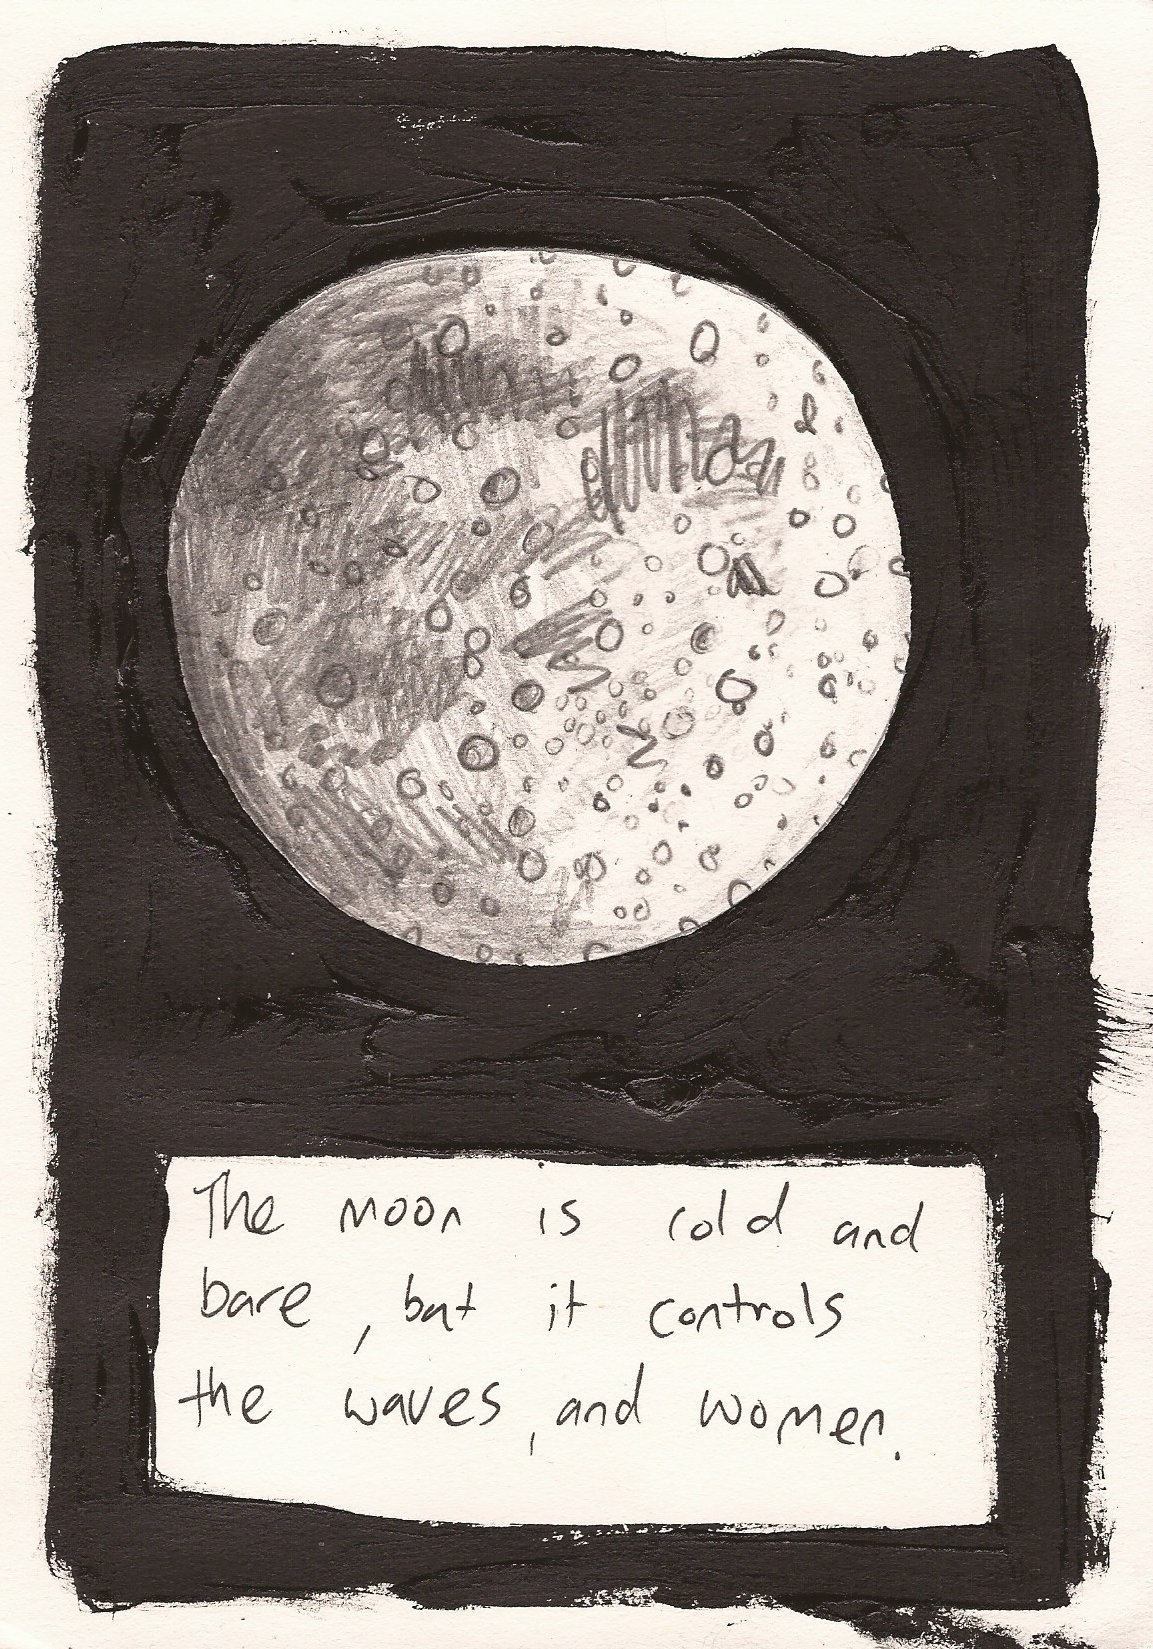 The moon is cold and
bare, but it controls
the waves, and women.